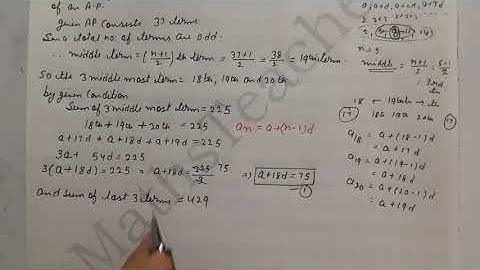 of an A.P.
given AP consists 37 terms
Since total no. of terms are odd:
∴ middle term = (n+1/2) th term = 37+1/2 = 38/2 = 19th term.
So the 3 middle most term = 18th, 19th and 20th
by given condition
Sum of 3 middle most term = 225
18th + 19th + 20th = 225
a+17d + a+18d + a+19d = 225
3a + 54d = 225
3(a+18d) = 225 ⇒ a+18d = 225/3 75 ⇒ a+18d = 75 ①
And sum of last 3 term = 429
an = a+(n-1)d
n = 5
middle = n+1/2 = 5+1/2
18 ← 19th → 20
18 19th 20th
a18 = a+(18-1)d
= a+17d
a19 = a+(19-1)d
= a+18d
a20 = a+(20-1)d
= a+19d
Maths Teacher